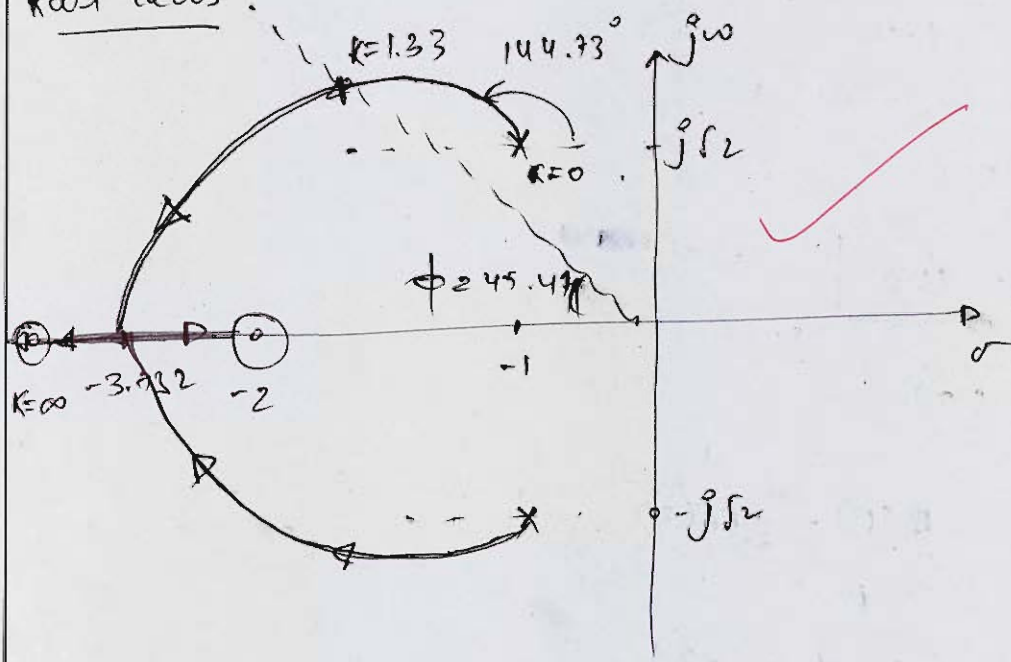 Root locus :
K=1.33 144.73° jω
j√2
K=0
ϕ = 45.47
-1 σ
K=∞ -3.732 -2
-j√2